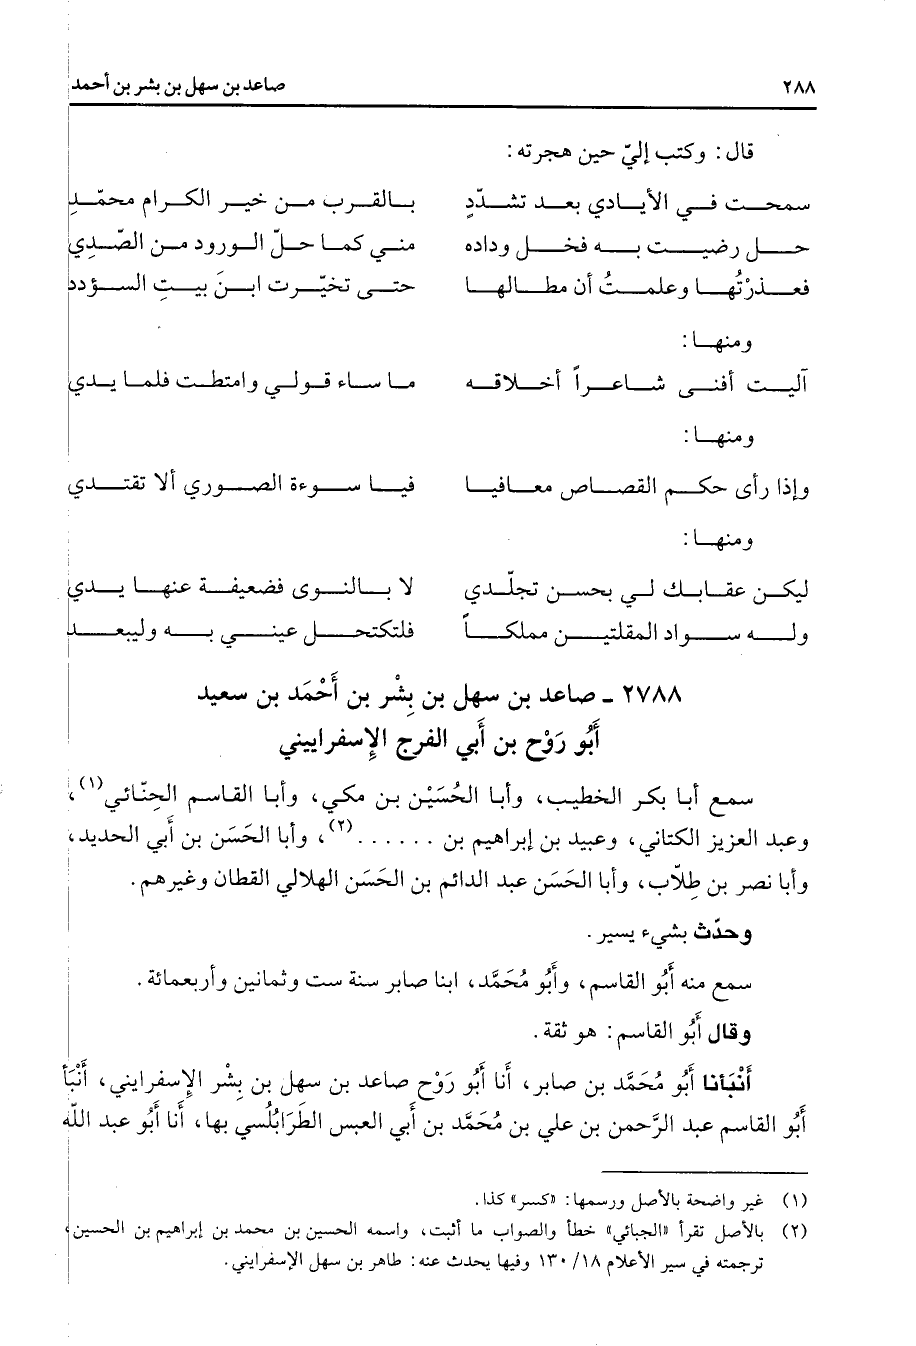 ٢٨٨ صاعد بن سهل بن بشر بن أحمد
قال: وكتب إليّ حين هجرته:
سمحت في الأيادي بعد تشدّدِ بالقرب من خير الكرام محمّدِ
حل رضيت به فخل وداده مني كما حلّ الورود من الصّدِي
فعذرتُها وعلمتُ أن مطالها حتى تخيّرت ابنَ بيتِ السؤدد
ومنها:
آليت أفنى شاعراً أخلاقه ما ساء قولي وامتطت فلما يدي
ومنها:
وإذا رأى حكم القصاص معافيا فيا سوءة الصوري ألا تقتدي
ومنها:
ليكن عقابك لي بحسن تجلّدي لا بالنوى فضعيفة عنها يدي
وله سواد المقلتين مملكاً فلتكتحل عيني به وليبعد
٢٧٨٨ ـ صاعد بن سهل بن بِشْر بن أَحْمَد بن سعيد
أَبُو رَوْح بن أَبي الفرج الإِسفراييني
سمع أبا بكر الخطيب، وأبا الحُسَيْن بن مكي، وأبا القاسم الحِنّائي(١)،
وعبد العزيز الكتاني، وعبيد بن إبراهيم بن ......(٢)، وأبا الحَسَن بن أبي الحديد،
وأبا نصر بن طلّاب، وأبا الحَسَن عبد الدائم بن الحَسَن الهلالي القطان وغيرهم.
وحدّث بشيء يسير.
سمع منه أَبُو القاسم، وأَبُو مُحَمَّد، ابنا صابر سنة ست وثمانين وأربعمائة.
وقال أَبُو القاسم: هو ثقة.
أَنْبَأنا أَبُو مُحَمَّد بن صابر، أَنا أَبُو رَوْح صاعد بن سهل بن بِشْر الإِسفرايني، أَنْبَأ
أَبُو القاسم عبد الرَّحمن بن علي بن مُحَمَّد بن أَبي العبس الطَرَابُلُسي بها، أَنا أَبُو عبد اللّه
(١) غير واضحة بالأصل ورسمها: «كسر» كذا.
(٢) بالأصل تقرأ «الجبائي» خطأ والصواب ما أثبت، واسمه الحسين بن محمد بن إبراهيم بن الحسين،
ترجمته في سير الأعلام ١٨/ ١٣٠ وفيها يحدث عنه: طاهر بن سهل الإسفرايني.